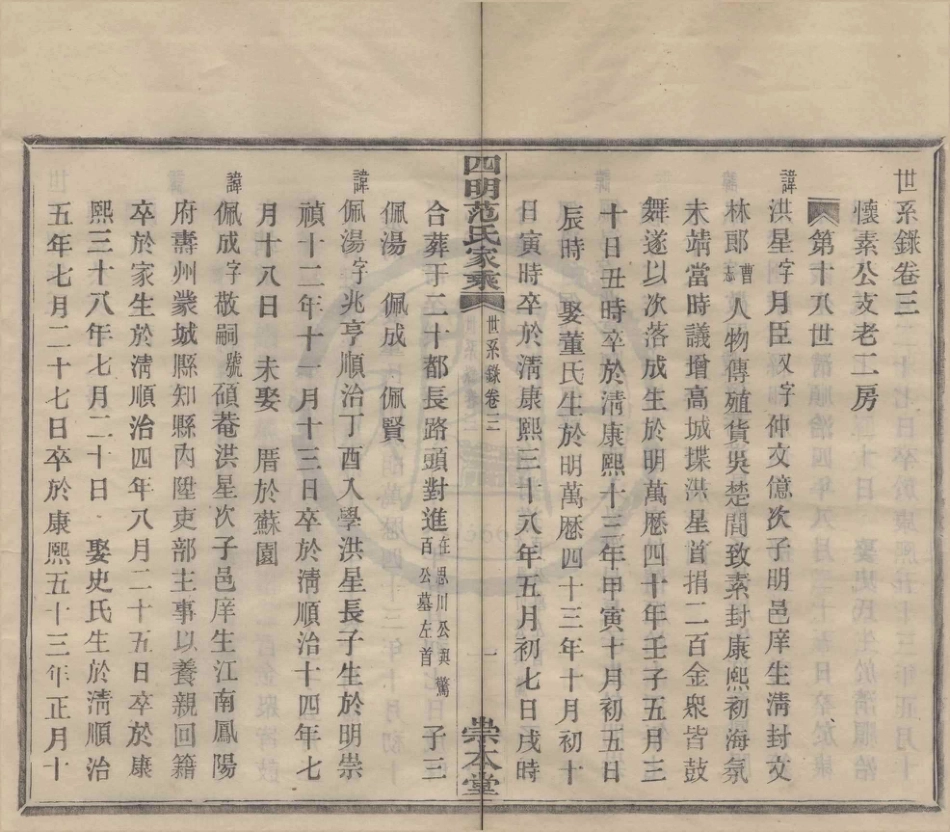 世系錄卷三
懷素公支老二房
第十八世
諱洪星字月臣又字仲文億次子明邑庠生淸封文
林郎曹志人物傳殖貨吳楚間致素封康熙初海氛
未靖當時議增高城堞洪星首捐二百金衆皆鼓
舞遂以次落成生於明萬厯四十年壬子五月三
十日丑時卒於淸康熙十三年甲寅十月初五日
辰時　娶董氏生於明萬厯四十三年十月初十
日寅時卒於淸康熙三十八年五月初七日戌時
四明范氏家乘　世系錄卷三　一　崇本堂
合葬于二十都長路頭對進在思川公與驚百公墓左首　子三
佩湯　佩成　佩賢
諱佩湯字兆亨順治丁酉入學洪星長子生於明崇
禎十二年十一月十三日卒於淸順治十四年七
月十八日　未娶　厝於蘇園
諱佩成字敬嗣號碩菴洪星次子邑庠生江南鳳陽
府壽州蒙城縣知縣內陞吏部主事以養親回籍
卒於家生於淸順治四年八月二十五日卒於康
熙三十八年七月二十日　娶史氏生於淸順治
五年七月二十七日卒於康熙五十三年正月十